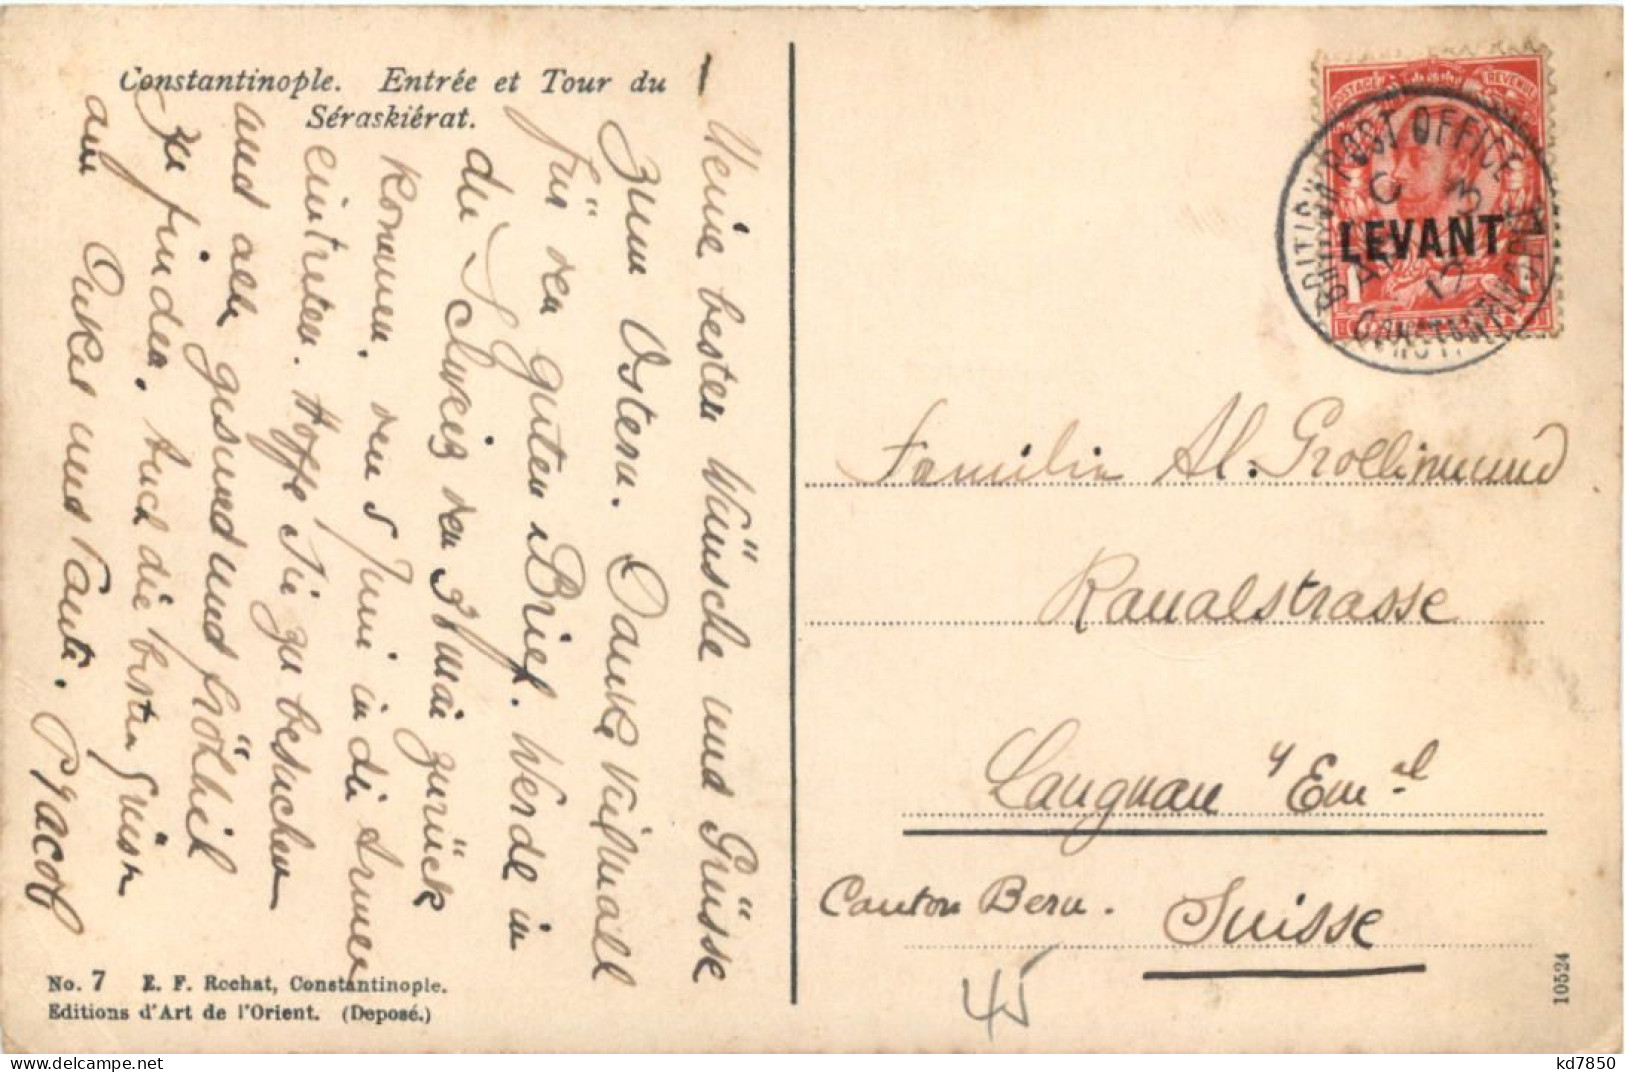 Constantinople. Entrée et Tour du
Séraskiérat.
Meine besten Wünsche und Grüsse
zum Ostern. Danke vielmall
für den guten Brief. Werde in
die Schweiz den
zurück
kommen, den 5 Juni in die
eintreten. Hoffe Sie zu besuchen
und alle gesund und fröhlich
zu finden. Auch die besten Grüsse
am Onkel und Tante. Jacob
No. 7 E. F. Rochat, Constantinople.
Editions d'Art de l'Orient. (Deposé.)
POSTAGE REVENUE
BRITISH POST OFFICE
C
LEVANT
CONSTANTINOPLE
Familie Al. Grollimund
Kanalstrasse
Langnau Emal
Canton Bern. Suisse
45
10524
kd7850